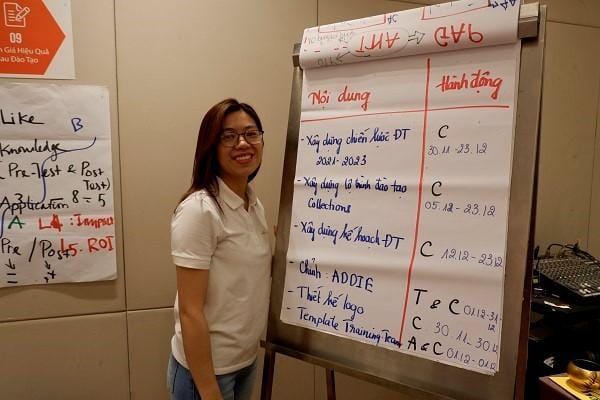 09
Giá Hiệu Quả
au Đào Tạo
Like
B
Knowledge
(Pre) Test & Post
Test)
Application 8 = 5
A L4: Impact
Pre / Post L5. ROI
GAP
AHT
Nội dung Hành động
- Xây dựng chiến lược ĐT C
2021-2023 30.11-23.12
- Xây dựng lộ trình đào tạo C
Collections 05.12-23.12
- Xây dựng kế hoạch ĐT C 12.12-23.12
- Chỉnh: ADDIE T & C 01.12-31.12
- Thiết kế logo C 30.11-30.12
- Template Training Team A & C 01.12-01.12